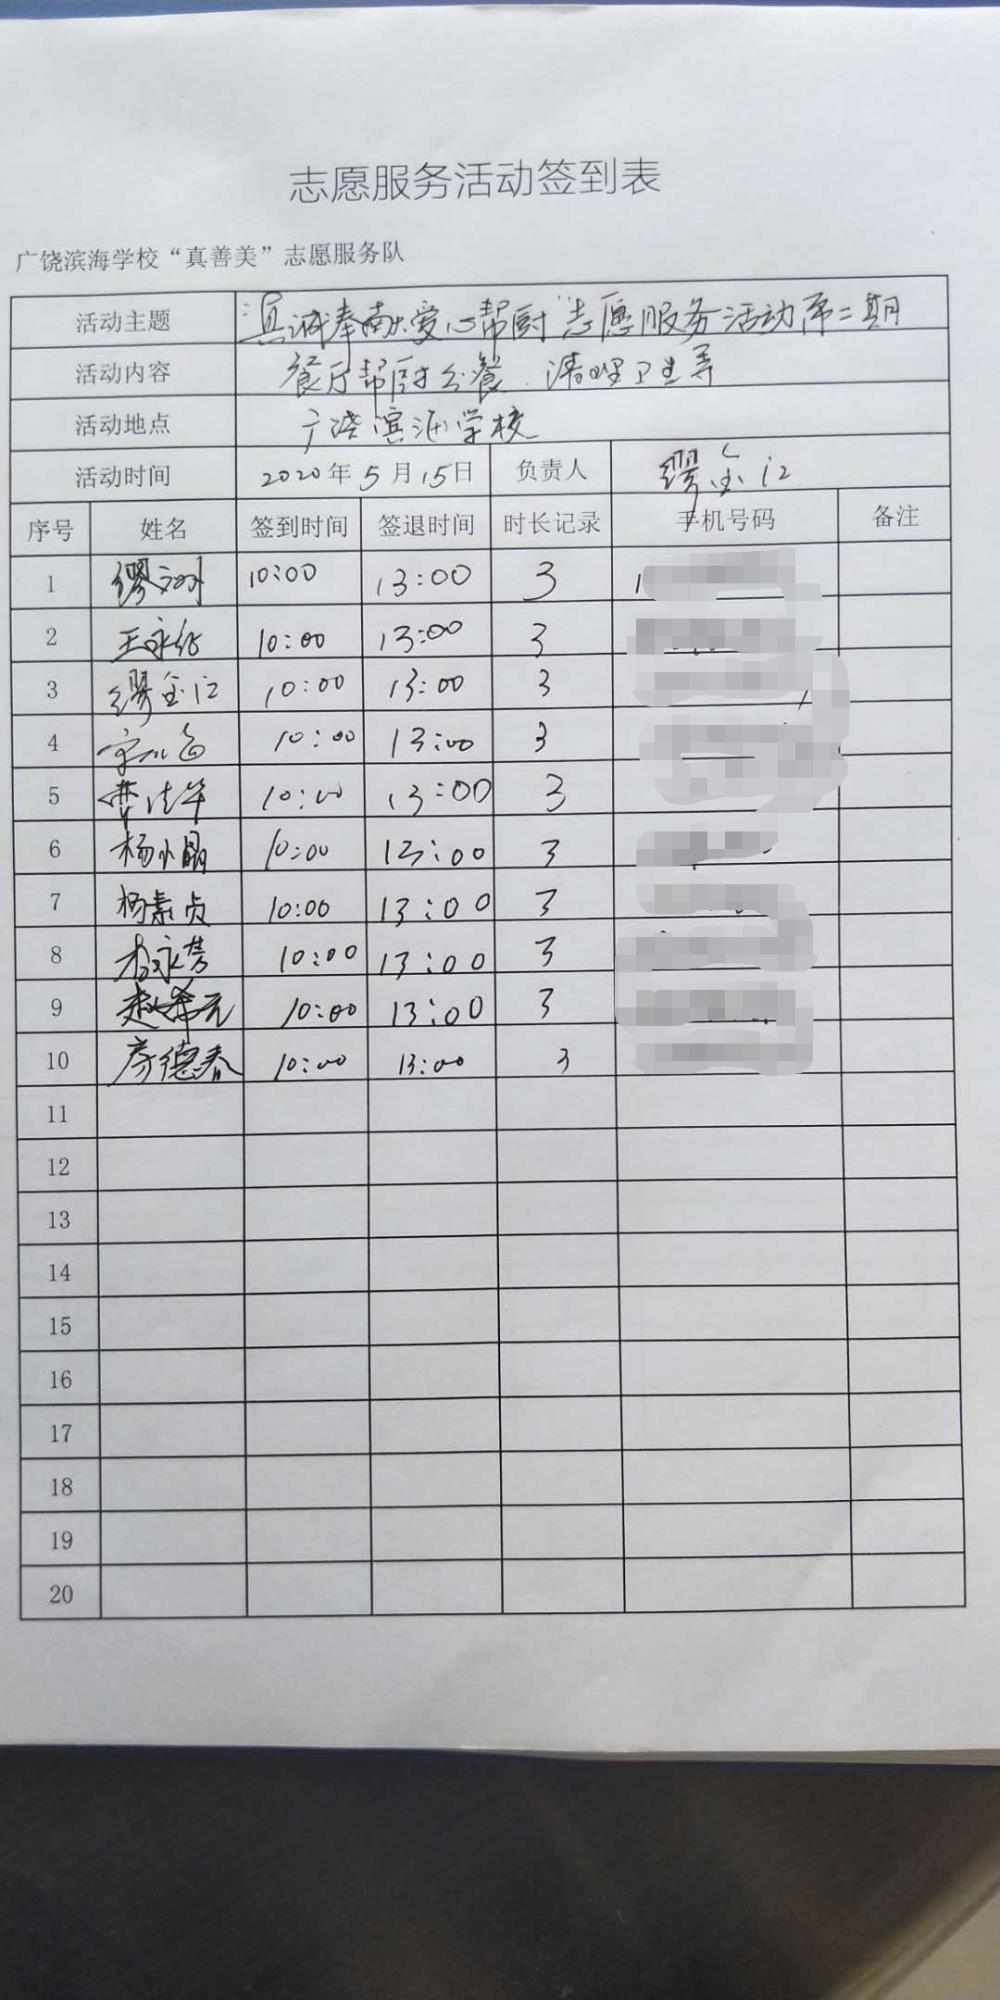 志愿服务活动签到表
广饶滨海学校“真善美”志愿服务队
活动主题 “真诚奉献、爱心帮厨”志愿服务活动第二期
活动内容 餐厅帮厨分餐、清理卫生等
活动地点 广饶滨海学校
活动时间 2020年5月15日 负责人 缪金江
序号 姓名 签到时间 签退时间 时长记录 手机号码 备注
1 缪 10:00 13:00 3 1
2 王永 10:00 13:00 3
3 缪金江 10:00 13:00 3
4 10:00 13:00 3
5 10:00 13:00 3
6 杨小晶 10:00 13:00 3
7 杨素贞 10:00 13:00 3
8 10:00 13:00 3
9 赵 10:00 13:00 3
10 彦德春 10:00 13:00 3
11
12
13
14
15
16
17
18
19
20